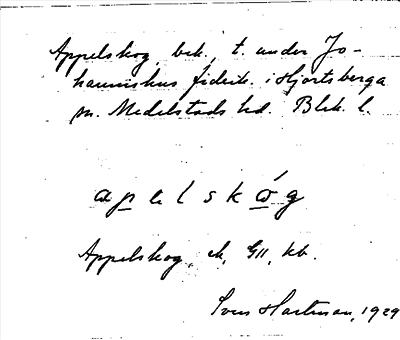 Appelskog, bek., t. under Jo-
hannishus fideik. i Hjortsberga
sn. Medelstads hd. Blek. l.
apelskóg
Appelskog, ek, GII, kb.
Sven Hartman, 1929